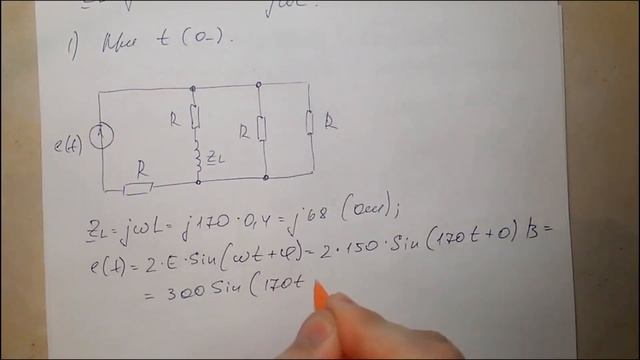 1) При t(0-).
e(t)
R
R
R
R
Z̲L
Z̲L = jωL = j170·0,4 = j68 (Ом);
e(t) = 2·E·Sin(ωt+φ) = 2·150·Sin(170t+0) B =
= 300 Sin (170t